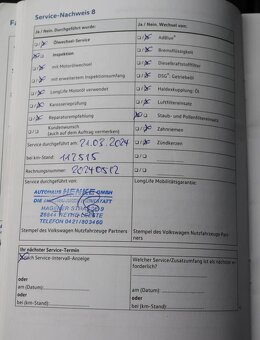 Service-Nachweis 8
Ja / Nein. Durchgeführt wurde:
Ölwechsel-Service
Inspektion
mit Motorölwechsel
mit erweitertem Inspektionsumfang
LongLife Motoröl verwendet
Karosserieprüfung
Reparaturempfehlung
Kundenwunsch
(auch auf dem Auftrag vermerken)
Ja / Nein. Wechsel von:
AdBlue®
Bremsflüssigkeit
Dieselkraftstofffilter
DSG® Getriebeöl
Haldexkupplung: Öl
Luftfiltereinsatz
Staub- und Pollenfiltereinsatz
Zahnriemen
Zündkerzen
Service durchgeführt am: 21.03.2024
bei km-Stand: 112515
Rechnungsnummer: 20240512
Service durchgeführt von:
AUTOHAUS HEMKE GMBH
TELEFON 0421/803460
Stempel des Volkswagen Nutzfahrzeuge Partners
LongLife Mobilitätsgarantie:
Stempel des Volkswagen Nutzfahrzeuge Partners
Ihr nächster Service-Termin
Nach Service-Intervall-Anzeige
oder
am (Datum):
oder
bei (km-Stand):
Welcher Service/Zusatzumfang ist als nächstes erforderlich?
am (Datum):
oder
bei (km-Stand):